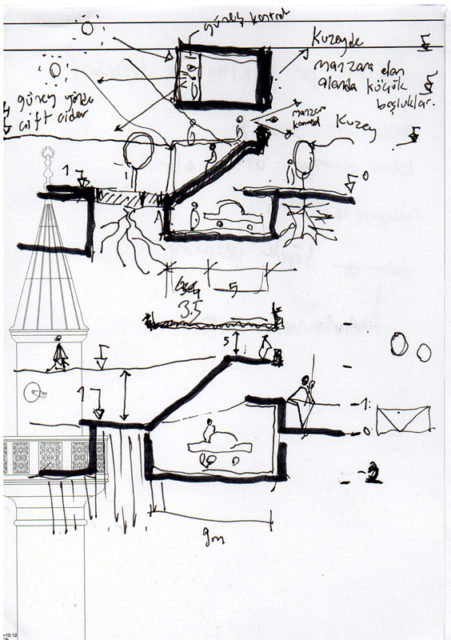 güneş kontrol
Kuzeyde
manzara olan
alanda küçük
boşluklar.
güney yönde
çift cidar
manzara
kontrol
Kuzey
1
0
3
3.5
5
1
-1
0
9m